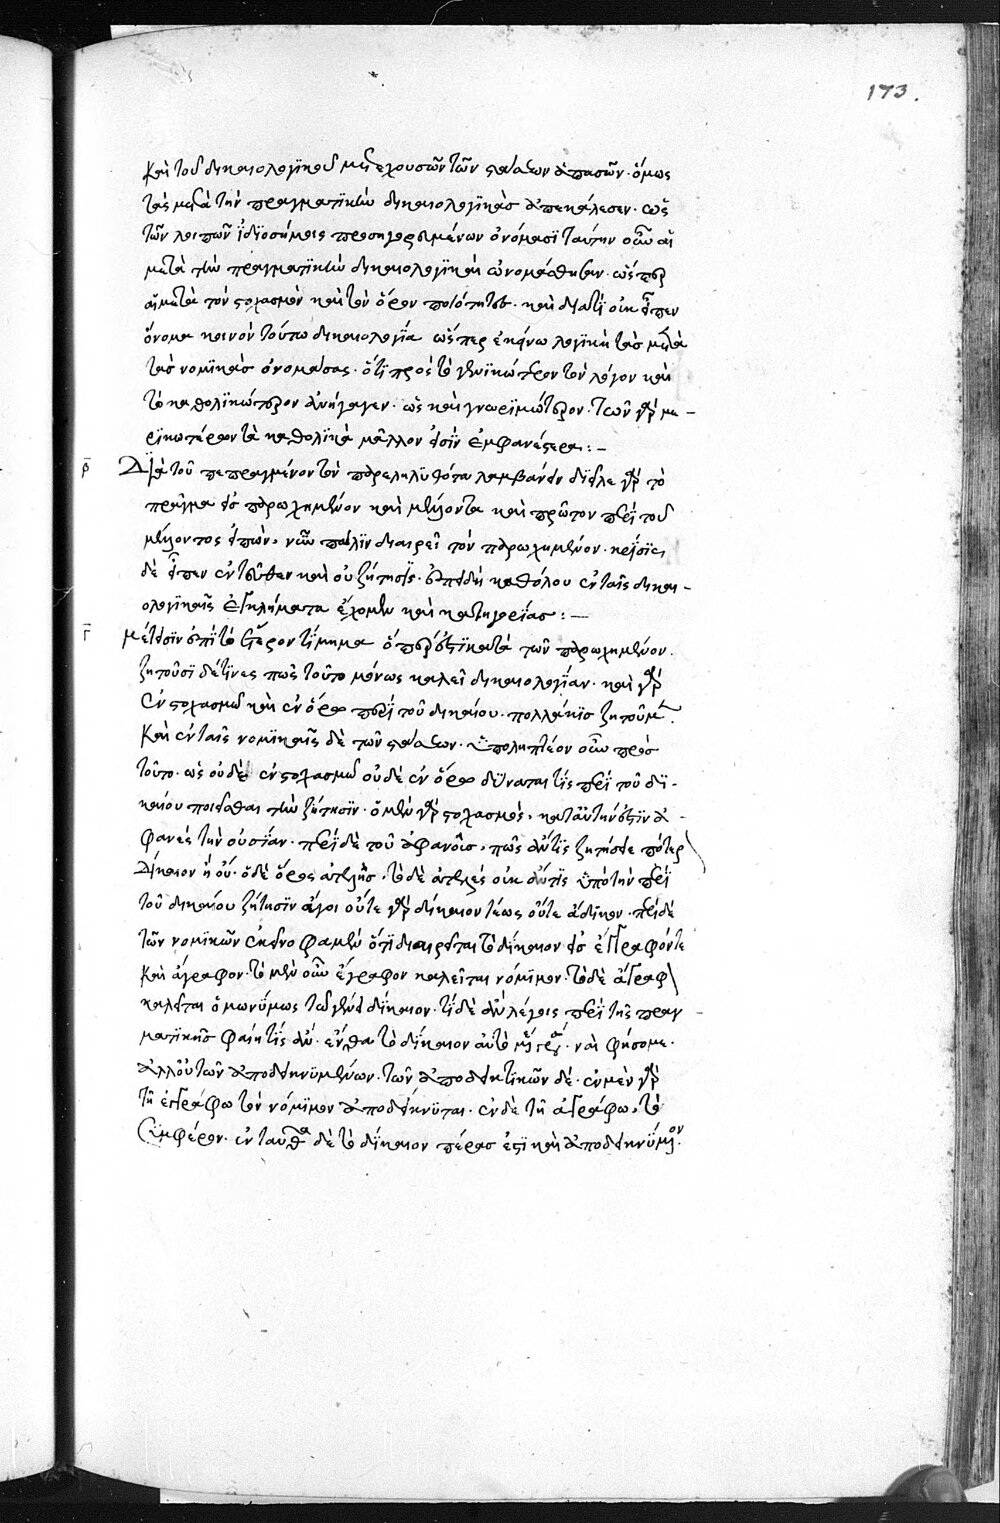 173.
καὶ τοῦ δικαιολογϊκοῦ μετεχουσῶν τῶν στάσεων ἁπασῶν· ὅμως
τὰς μετὰ τὴν πραγματϊκὴν δικαιολογϊκὰσ ἀπεκάλεσεν· ὡς
τῶν λοιπῶν ἰδϊοσήμοις προσηγορευμένων ὀνόμασϊ ταύτην οὖν αἱ
μετὰ τὴν πραγματϊκὴν δικαιολογϊκαὶ ὠνομάσθησαν· ὥσπερ
αἱ μετὰ τὸν στοχασμὸν καὶ τὸν ὅρον ποιότητες· καὶ διατί οὐκ εἶπεν
ὄνομα κοινὸν τούτω δικαιολογΐα ὥσπερ ἐκείνω λογϊκὴ τὰσ μετὰ
τὰσ νομϊκὰσ ὀνομάσας· ὅτϊ πρὸς τὸ γενϊκώτερον τὸν λόγον καὶ
τὸ καθολϊκώτερον ἀνήγαγεν· ὡς καὶ γνωρϊμώτερον· τῶν γὰρ με-
ρϊκωτέρων τὰ καθολϊκὰ μᾶλλον εἰσὶν ἐμφανέστερα:-
β Δϊὰ τοῦ πεπραγμένον τὸν παρεληλϋθότα λαμβάνειν διεῖλε γὰρ τὸ
πρᾶγμα εἰσ παρωχημένον καὶ μέλλοντα καὶ πρῶτον περὶ τοῦ
μέλλοντος εἰπὼν, νῦν πάλϊν διαιρεῖ τὸν παρωχημένον· κρίσϊς
δὲ εἶπεν ἐντεῦθεν καὶ οὐ ζήτησϊς· ἐπειδὴ καθόλου ἐν ταῖς δικαι-
ολογϊκαῖς ἐγκλήματα ἔχομεν καὶ κατηγορίας:—
γ Μέτεισϊν ἐπὶ τὸ ἕτερον τίμημα ὅπερ ἐστὶ κατὰ τῶν παρωχημένων·
ζητοῦσϊ δέ τϊνες πῶς τοῦτο μόνως καλεῖ δικαιολογΐαν· καὶ γὰρ
ἐν στοχασμῶ καὶ ἐν ὅρω περὶ τοῦ δικαίου· πολλάκϊσ ζητοῦμεν.
Καὶ ἐν ταῖς νομϊκαῖς δὲ τῶν στάσεων· ὑποληπτέον οὖν πρὸσ
τοῦτο· ὡς οὐδὲ ἐν στοχασμῶ οὐδὲ ἐν ὅρω δύναται τὶς περὶ τοῦ δϊ-
καίου ποιεῖσθαι τὴν ζήτησϊν· ὁ μὲν γὰρ στοχασμὸς, κατ' αὐτήν ἐστϊν ἀ-
φανὲς τὴν οὐσΐαν· περὶ δὲ τοῦ ἀφανοῦς, πῶς ἄν τϊς ζητήσειε πότερον
δίκαιον ἢ οὔ· ὁ δὲ ὅρος ἀτελὴς, τὸ δὲ ἀτελὲς οὐκ ἄν τϊς ὑπὸ τὴν περὶ
τοῦ δικαίου ζήτησϊν ἄγοι οὔτε γὰρ δίκαιον τέως οὔτε ἄδϊκον· περὶ δὲ
τῶν νομϊκῶν ἐκεῖνο φαμὲν ὅτϊ διαιρεῖται τὸ δίκαιον εἰσ ἔγγραφόν τε
καὶ ἄγραφον· τὸ μὲν οὖν ἔγραφον καλεῖται νόμϊμον· τὸ δὲ ἄγραφον
καλεῖται ὁμωνύμως τῶ γένει δίκαιον· τί δὲ ἂν λέγοις περὶ τῆς πραγ-
ματϊκῆς φαίη τὶς ἄν· ἔνθα τὸ δίκαιον αὐτὸ ναὶ φήσομεν·
ἀλλ' οὐ τῶν ἀποδεικνϋμένων· τῶν ἀποδεικτϊκῶν δὲ· ἐν μὲν γὰρ
τῆ ἐγγράφω τὸν νόμϊμον ἀποδείκνϋται· ἐν δὲ τῆ ἀγράφω, τὸ
συμφέρον· ἐνταῦθα δὲ τὸ δίκαιον πέρασ ἐστὶ καὶ ἀποδεικνύμενον·